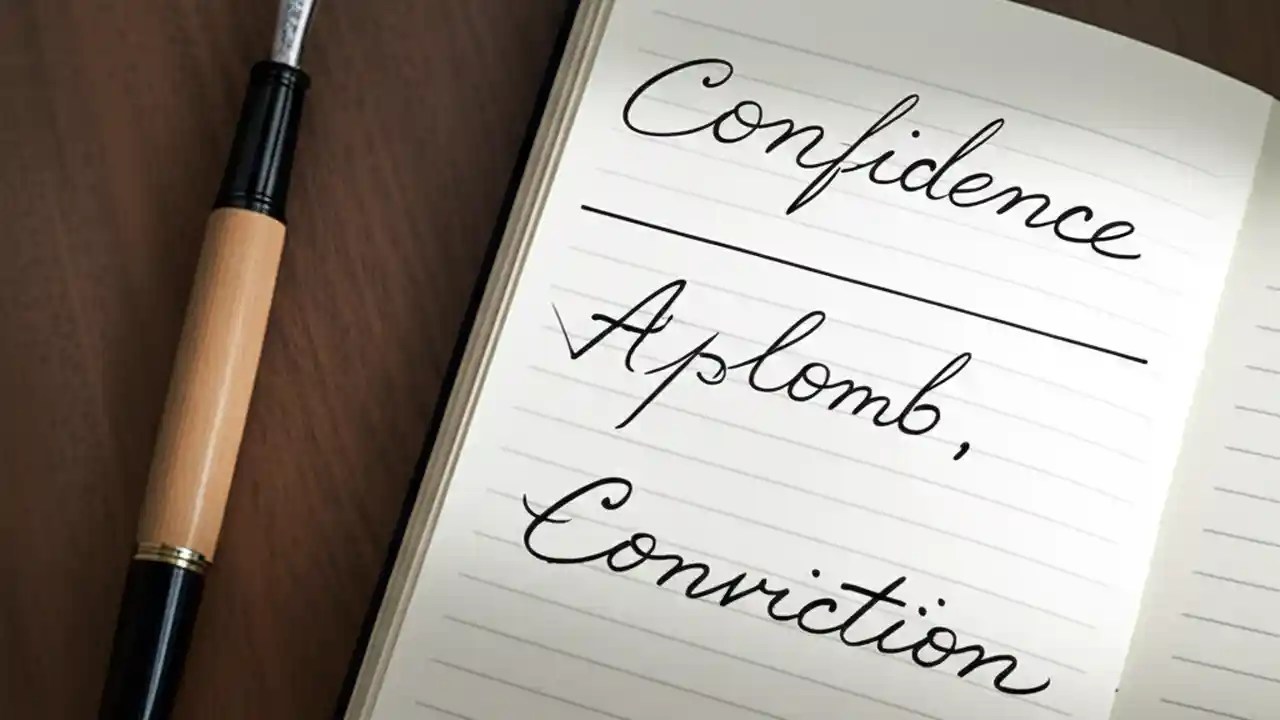 Confidence
Aplomb,
Conviction